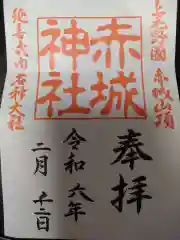 上毛野國 赤城山頂
奉拝
赤城
神社
令和六年
二月 二日
延喜式内 名神大社